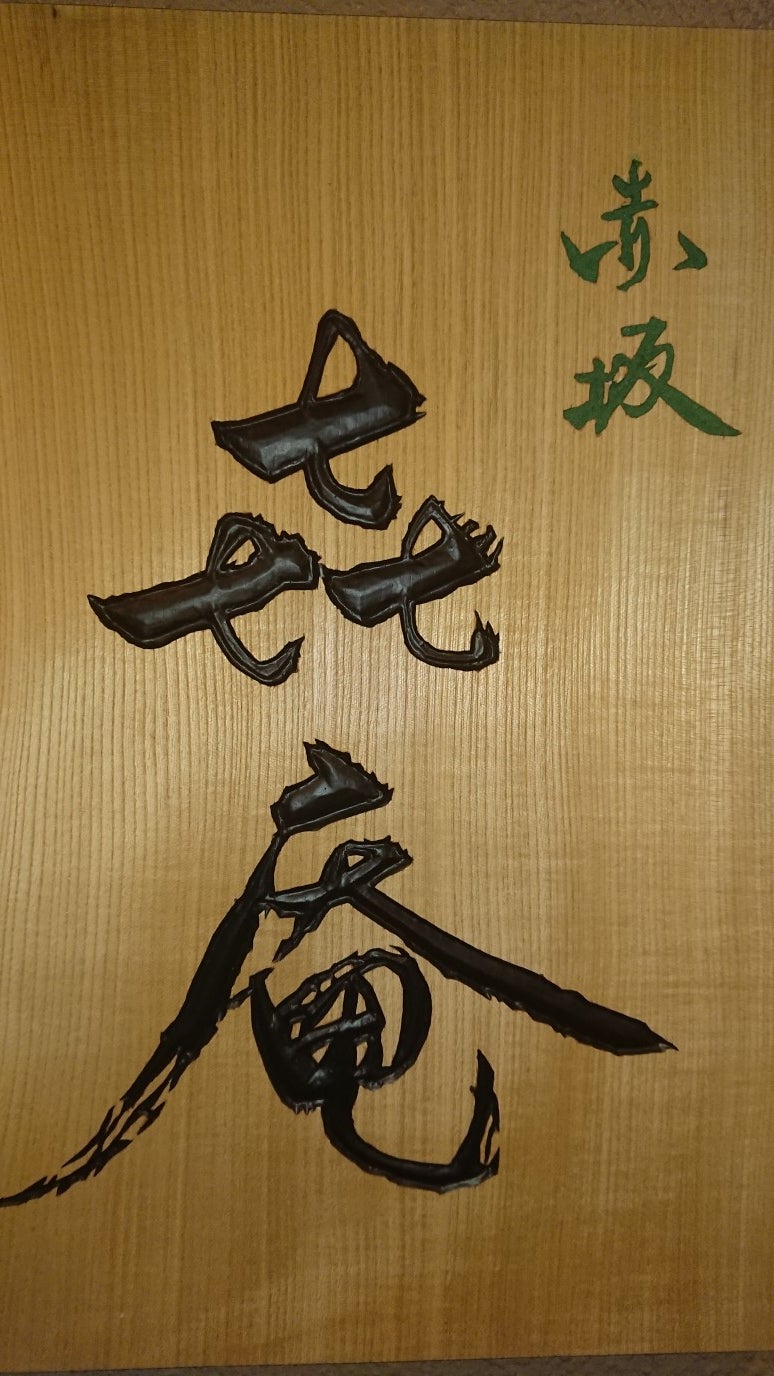 赤坂
㐂庵